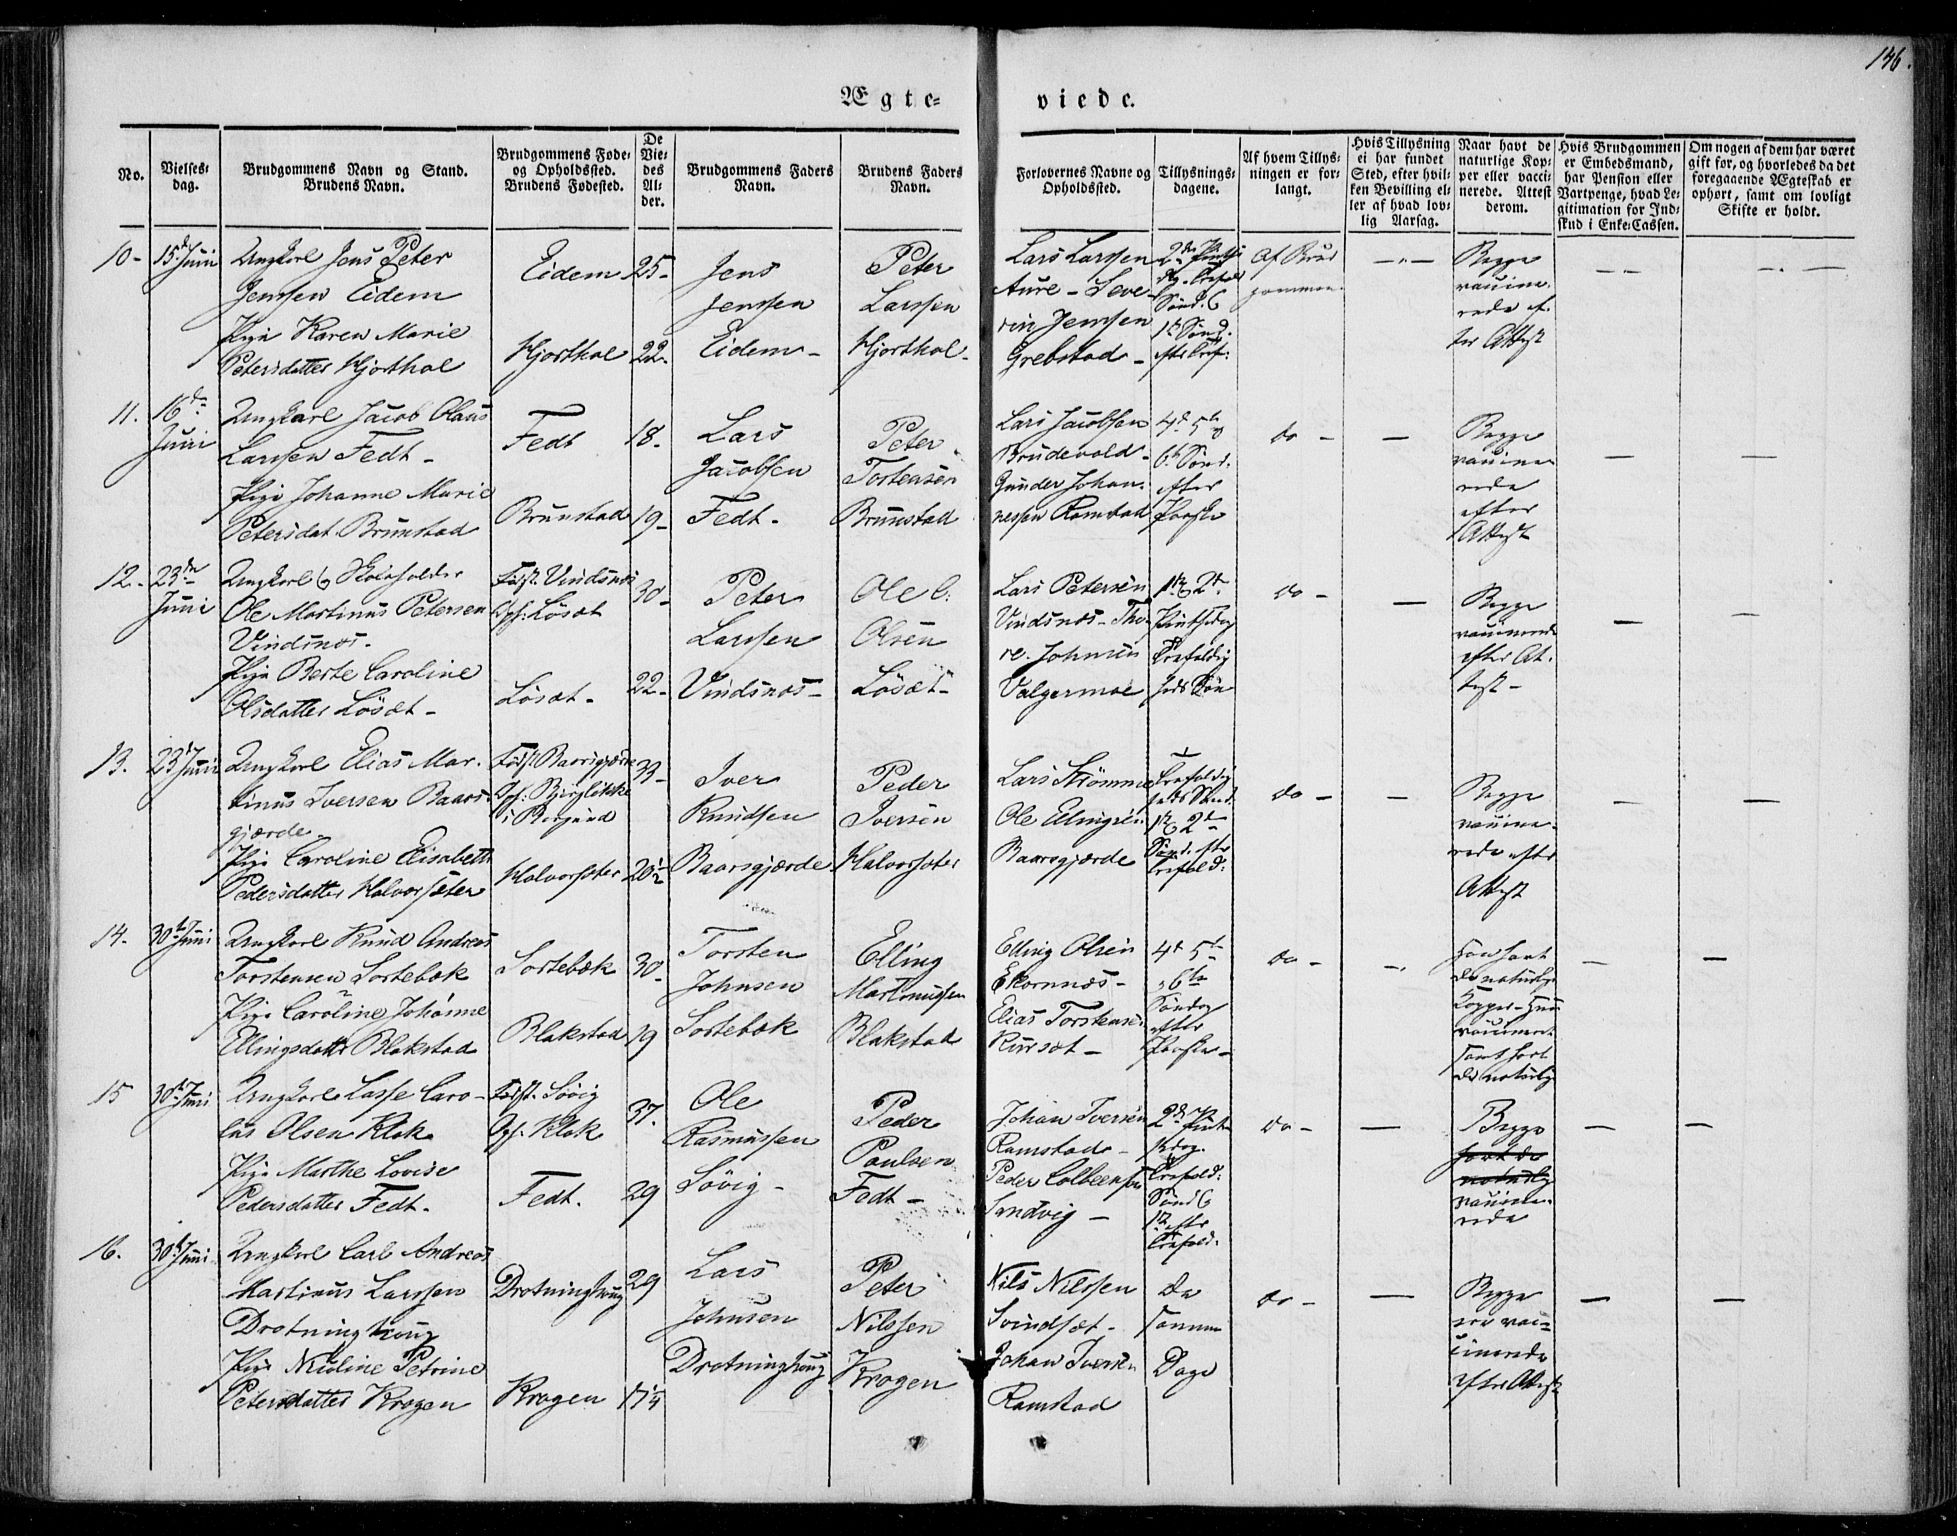 146.
Ægte-
viede.
No.
Vielses-
dag.
Brudgommens Navn og Stand.
Brudens Navn.
Brudgommens Føde-
og Opholdssted.
Brudens Fødested.
De
Vie-
des
Al-
der.
Brudgommens Faders
Navn.
Brudens Faders
Navn.
Forlovernes Navne og
Opholdssted.
Tillysnings-
dagene.
Af hvem Tillys-
ningen er for-
langt.
Hvis Tillysning
ei har fundet
Sted, efter hvil-
ken Bevilling el-
ler af hvad lov-
lig Aarsag.
Naar havt de
naturlige Kop-
per eller vacci-
nerede. Attest
derom.
Hvis Brudgommen
er Embedsmand,
har Pension eller
Vartpenge, hvad Le-
gitimation for Ind-
skud i Enke-Cassen.
Om nogen af dem har været
gift før, og hvorledes da det
foregaaende Ægteskab er
ophørt, samt om lovligt
Skifte er holdt.
10-
15d Juni
Ungkarl Jens Peter
Jenssen Eidem
Pige Karen Marie
Petersdatter Hjorthol
Eidem
Hjorthol
25-
22-
Jens
Jenssen
Eidem-
Peter
Larssen
Hjorthol-
Lars Larssen
Aure - Seve-
rin Jenssen
Grebstad -
2den
Sønd. &
1ste Sønd.
Af Brud
gommen.
Begge
vaccine-
rede ef-
ter Attest
11.
16de
Juni
Ungkarl Jacob Olaus
Larssen Fedt -
Pige Johanne Marie
Petersdat. Brunstad
Fedt
Brunstad
18-
19-
Lars
Jacobsen
Fedt.
Peter
Torstensen
Brunstad
Lars Jacobsen
Brudevold -
Gunder Johan-
nessen Ramstad
4d 5te
6te Sønd.
efter
Paaske
do -
Begge
vaccine-
rede
efter
Attest
12.
23de
Juni
Ungkarl & Skoleholder
Ole Martinus Petersen
Vindsnæs.
Pige Berte Caroline
Olsdatter Løsæt -
Født. Vindsnæs
Oph: Løsæt
Løsæt -
30-
22-
Peter
Larssen
Vindsnæs-
Ole
Olsen
Løsæt-
Lars Petersen
Vindsnæs - Tho-
re Johnsen
Valgermoe
1ste & 2d
Pintsedag
Trefoldig
heds Søn
do -
Begge
vaccinerede
efter At-
test -
13.
23d Juni
Ungkarl Elias Mar-
tinus Iversen Baars-
gjærde.
Pige Caroline Elisabeth
Pedersdatter Halvorsæter
Født Baarsgjærde
i Borgund
Halvorsæter
33-
20½
Iver
Knudsen
Baarsgjærde
Peder
Iversen
Halvorsæter
Lars Strømme
Ole Ellingsen
Baarsgjærde
Trefoldig
heds Sønd.
1ste & 2d
Sønd. eftr
Trefold:
do -
Begge
vaccine-
rede efter
Attest
14.
30te Juni
Ungkarl Knud Andreas
Torstensen Sortebæk
Pige Caroline Johanne
Ellingsdatter Blakstad
Sortebæk
Blakstad
30-
19
Torsten
Johnsen
Sortebæk
Elling
Martinussen
Blakstad
Elling Olsen
Ekornnæs -
Elias Torstensen
Kursæt -
4d 5te
6te
Søndag
efter
Paaske -
do -
Han havt
de naturlige
Kopper - Hun
vaccineret
samt havt
de naturlig
15
30te Juni
Ungkarl Lasse Caro-
lus Olsen Klok
Pige Marthe Lovise
Pedersdatter Fedt.
Født. Søvig
Oph. Klok
Fedt.
37.
29
Ole
Rasmussen
Søvig -
Peder
Paulsen
Fedt -
Johan Iversen
Ramstad -
Peder Colbeensen
Sandvig -
2d
Trefold:
Sønd &
1ste eftr
Trefold.
do -
Begge
havt de
naturlig
vaccine-
rede
16.
30te Juni
Ungkarl Carl Andreas
Martinus Larssen
Drotninghoug
Pige Nicoline Petrine
Petersdatter Krogen
Drotninghoug
Krogen
29
17¼
Lars
Johnsen
Drotninghoug
Peter
Nilssen
Krogen
Nils Nilssen
Svindsæt -
Johan Iversen
Ramstad
De
samme
Dage
do -
Begge
ere vac-
cinerede
efter Attest